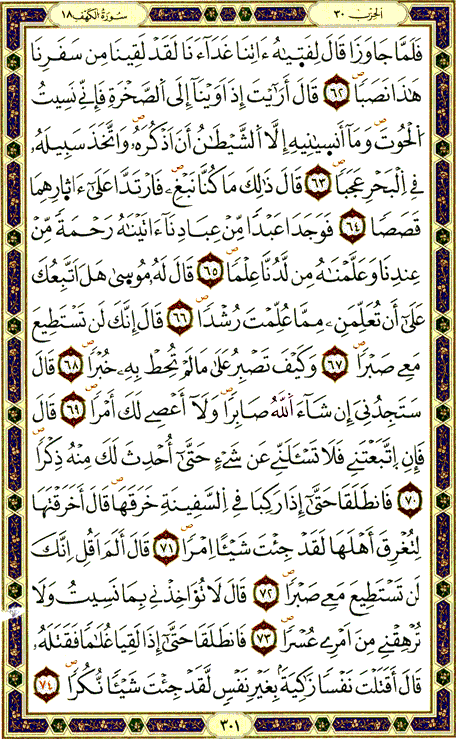 سُورَةُ الكَهْف ١٨
الحِزْب ٣٠
فَلَمَّا جَاوَزَا قَالَ لِفَتِيٰهُ ءَاتِنَا غَدَآءَنَا لَقَدْ لَقِينَا مِن سَفَرِنَا
هَٰذَا نَصَبًا ٦٢ قَالَ أَرَٰيْتَ إِذَ اوَيْنَا إِلَى اَلصَّخْرَةِ فَإِنِّے نَسِيتُ
اُلْحُوتَ وَمَآ أَنسٜينِيهِ إِلَّا اَلشَّيْطَٰنُ أَنَ اَذْكُرَهُۥ وَاتَّخَذَ سَبِيلَهُۥ
فِے اِلْبَحْرِ عَجَبًا ٦٣ قَالَ ذَٰلِكَ مَا كُنَّا نَبْغِۦ فَارْتَدَّا عَلَىٰٓ ءَاثٜارِهِمَا
قَصَصًا ٦٤ فَوَجَدَا عَبْدًا مِّنْ عِبَادِنَآ ءَاتَيْنَٰهُ رَحْمَةً مِّنْ
عِندِنَا وَعَلَّمْنَٰهُ مِن لَّدُنَّا عِلْمًا ٦٥ قَالَ لَهُۥ مُوسٜىٰ هَلَ اَتَّبِعُكَ
عَلَىٰٓ أَن تُعَلِّمَنِۦ مِمَّا عُلِّمْتَ رُشْدًا ٦٦ قَالَ إِنَّكَ لَن تَسْتَطِيعَ
مَعِے صَبْرًا ٦٧ وَكَيْفَ تَصْبِرُ عَلَىٰ مَا لَمْ تُحِطْ بِهِۦ خُبْرًا ٦٨ قَالَ
سَتَجِدُنِيَ إِن شَآءَ اَللَّهُ صَابِرًا وَلَآ أَعْصِے لَكَ أَمْرًا ٦٩ قَالَ
فَإِنِ اِتَّبَعْتَنِے فَلَا تَسْـَٔلَنِّے عَن شَےْءٍ حَتَّىٰٓ أُحْدِثَ لَكَ مِنْهُ ذِكْرًا
٧٠ فَانطَلَقَا حَتَّىٰٓ إِذَا رَكِبَا فِے اِلسَّفِينَةِ خَرَقَهَا قَالَ أَخَرَقْتَهَا
لِتُغْرِقَ أَهْلَهَا لَقَدْ جِئْتَ شَيْـًٔا اِمْرًا ٧١ قَالَ أَلَمَ اَقُلِ اِنَّكَ
لَن تَسْتَطِيعَ مَعِے صَبْرًا ٧٢ قَالَ لَا تُؤَاخِذْنِے بِمَا نَسِيتُ وَلَا
تُرْهِقْنِے مِنَ اَمْرِے عُسْرًا ٧٣ فَانطَلَقَا حَتَّىٰٓ إِذَا لَقِيَا غُلَٰمًا فَقَتَلَهُۥ
قَالَ أَقَتَلْتَ نَفْسًا زَٰكِيَةَۢ بِغَيْرِ نَفْسٍ لَّقَدْ جِئْتَ شَيْـًٔا نُّكُرًا ٧٤
٣٠١